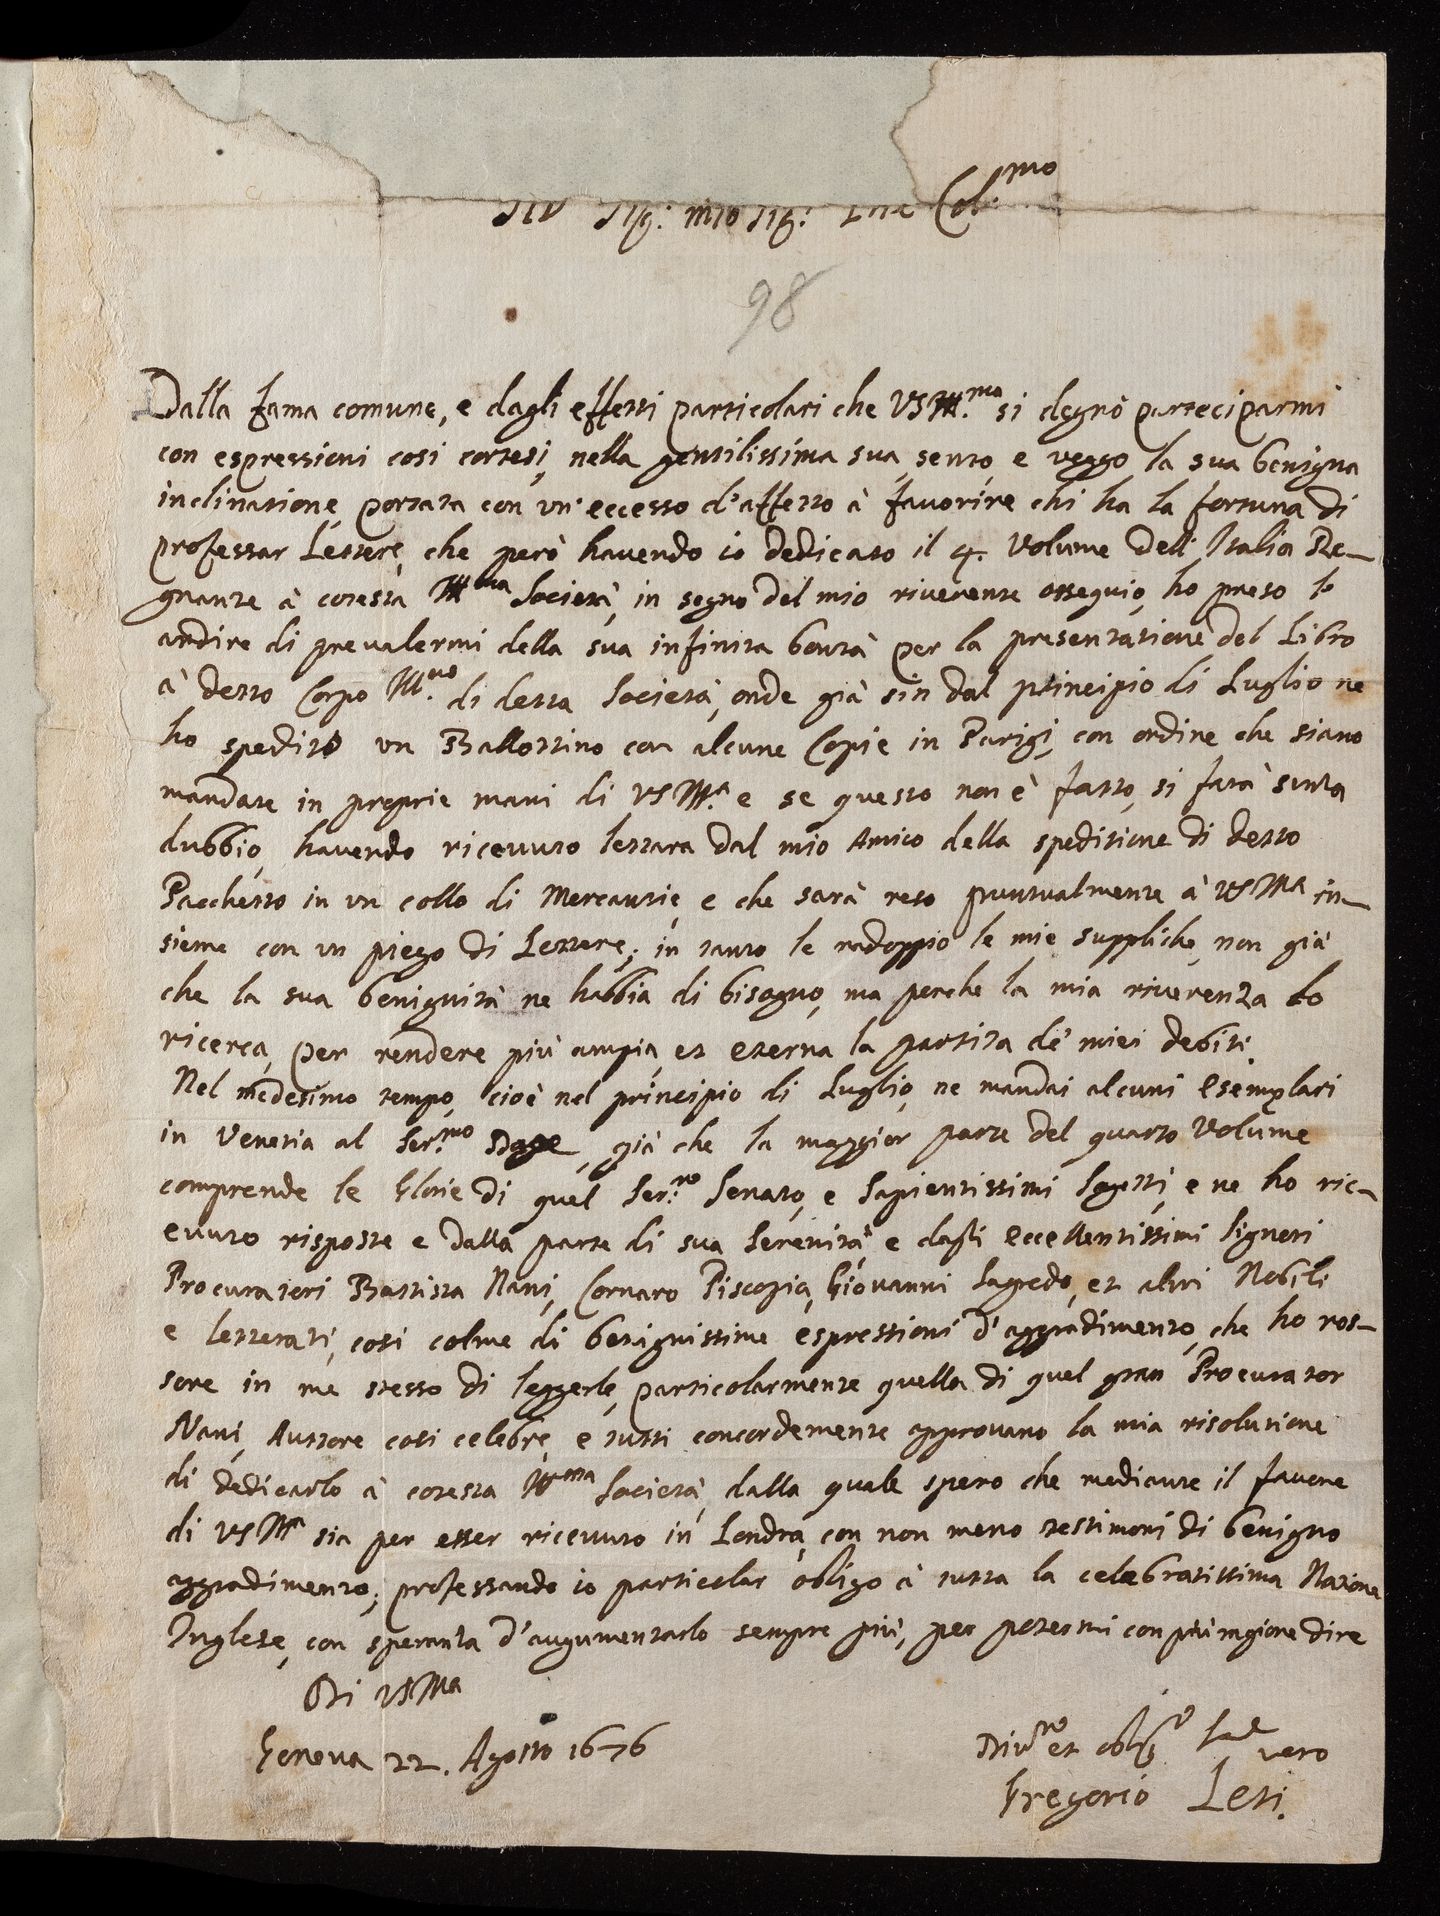 Sig: mio Sig: Col.mo
98
Dalla fama comune, e dagli effetti particolari che VS Ill.ma si degnò parteciparmi
con espressioni cosi cortesi, nella gentilissima sua, sento, e veggo la sua benigna
inclinatione, portata con un' eccesso d'affetto à favorire chi ha la fortuna di
professar Lettere, che però havendo io dedicato il 4. Volume dell' Italia Re-
gnante à cotesta Ill.ma Società, in segno del mio riverente osseguio, ho preso lo
ardire di prevalermi della sua infinita bontà per la presentatione del Libro
à detto Corpo Ill.mo di detta Società, onde già sin dal principio di Luglio ne
ho spedito un Ballottino con alcune Copie in Parigi, con ordine che siano
mandate in proprie mani di VS Ill.a e se questo non è fatto, si farà senza
dubbio, havendo ricevuto lettara dal mio Amico della speditione di detto
Pacchetto in un collo di Mercantie, e che sarà reso puntualmente à VS Illa in-
sieme con un piego di Lettere; in tanto le radoppio le mie suppliche, non già
che la sua benignità ne habbia di bisogno, ma perche la mia riverenza lo
ricerca, per rendere più ampia, et eterna la partita de' miei debiti.
Nel medesimo tempo, cioè nel principio di Luglio, ne mandai alcuni Esemplari
in Venetia al Ser.mo Doge, già che la maggior parte del quarto Volume
comprende le Glorie di quel Ser.mo Senato, e Sapientissimi Soggetti, e ne ho ric-
evuto risposte e dalla parte di sua Serenità e dagli Eccellentissimi Signori
Procuratori Battista Nani, Cornaro Piscopia, Giovanni Sagredo, et altri Nobili
e letterati, cosi colme di benignissime espressioni d'aggradimento, che ho ros-
sore in me stesso di leggerle, particolarmente quella di quel gran Procurator
Nani, Auttore cosi celebre, e tutti concordemente approvano la mia risolutione
di dedicarlo à cotesta Ill.ma Società, dalla quale spero che mediante il favore
di VS Illa sia per esser ricevuto in Londra, con non meno testimoni di benigno
aggradimento; professando io particolar obligo à tutta la celebratissima Natione
Inglese, con speranza d'augumentarlo sempre più, per potermi con più ragione dire
Di VS Illa
Genova 22. Agosto 1676
Div.mo et oblig.o Ser.e vero
Gregorio Leti.